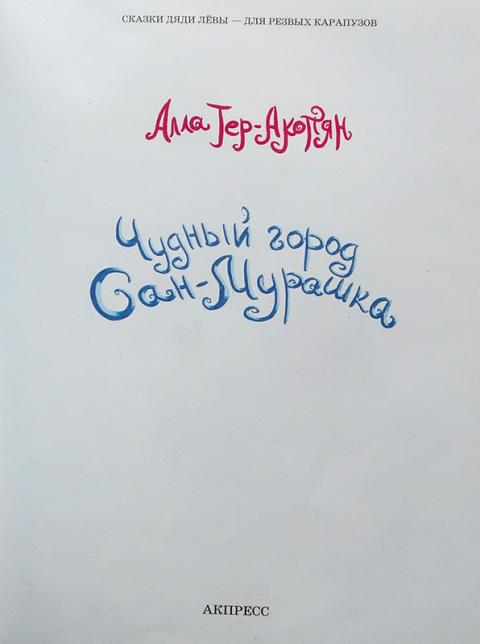 СКАЗКИ ДЯДИ ЛЁВЫ — ДЛЯ РЕЗВЫХ КАРАПУЗОВ
Алла Тер-Акопян
Чудный город
Сан-Мурашка
АКПРЕСС